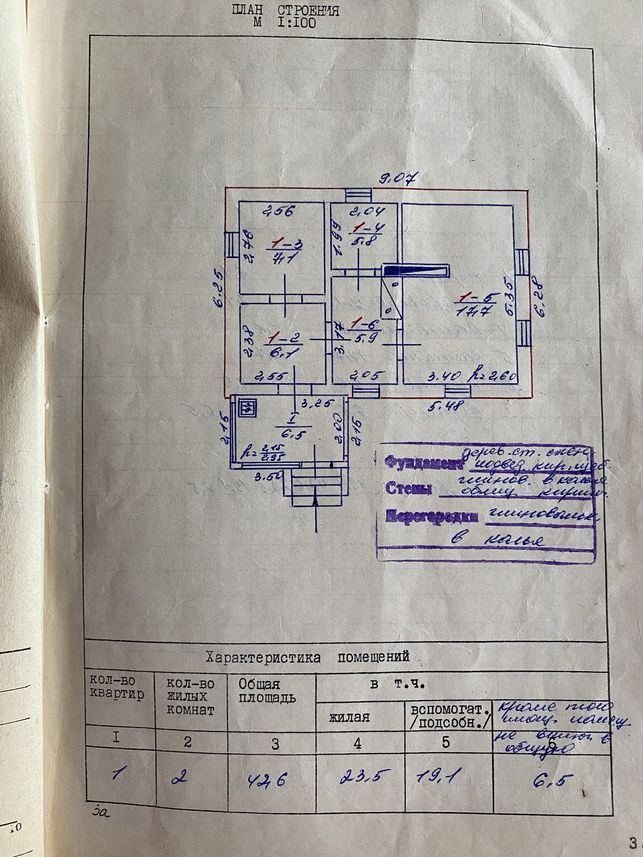 ПЛАН СТРОЕНИЯ
М I:I00
9.07
2,56
2,04
2,76
1-3
7,1
1,99
1-4
5.8
6.25
1-5
17,7
5.35
6.28
2,38
1-2
6,1
3,17
1-6
5.9
2,55
2,05
3.40 h=2,60
3,25
5.48
2,15
I
6,5
h=2,15
2,35
2.00
2,15
3.50
Фундамент дерев. ст.
подвед. кир.
Стены глинов. в колья
облиц. кирпич.
Перегородки глиновальн.
в колья
Характеристика помещений
кол-во
квартир
кол-во
жилых
комнат
Общая
площадь
в т.ч.
жилая
вспомогат.
/подсобн./
кроме того
площ. помещ.
не вкл. в
общую
I 2 3 4 5
1 2 42,6 23,5 19,1 6,5
За
3